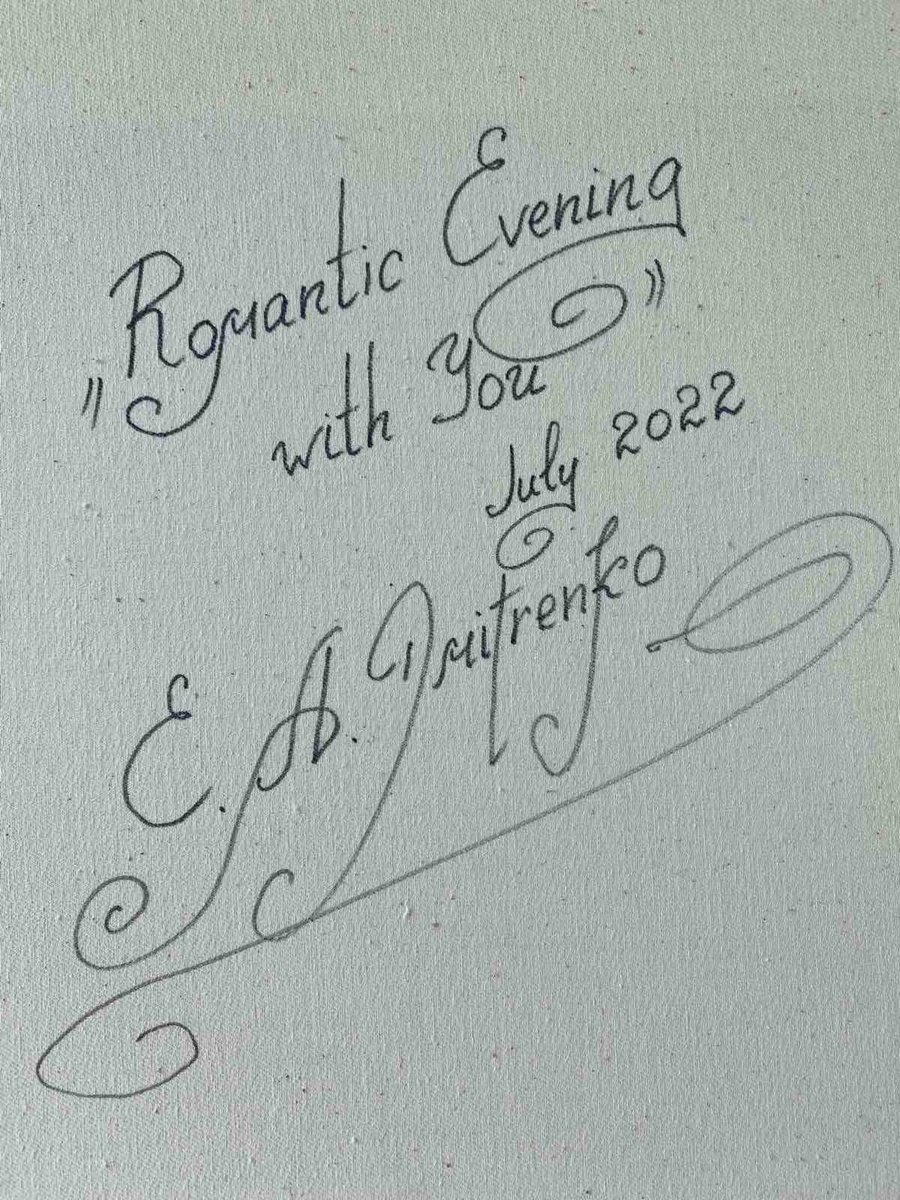 „Romantic Evening
with You”
July 2022
E. A. Dmitrenko